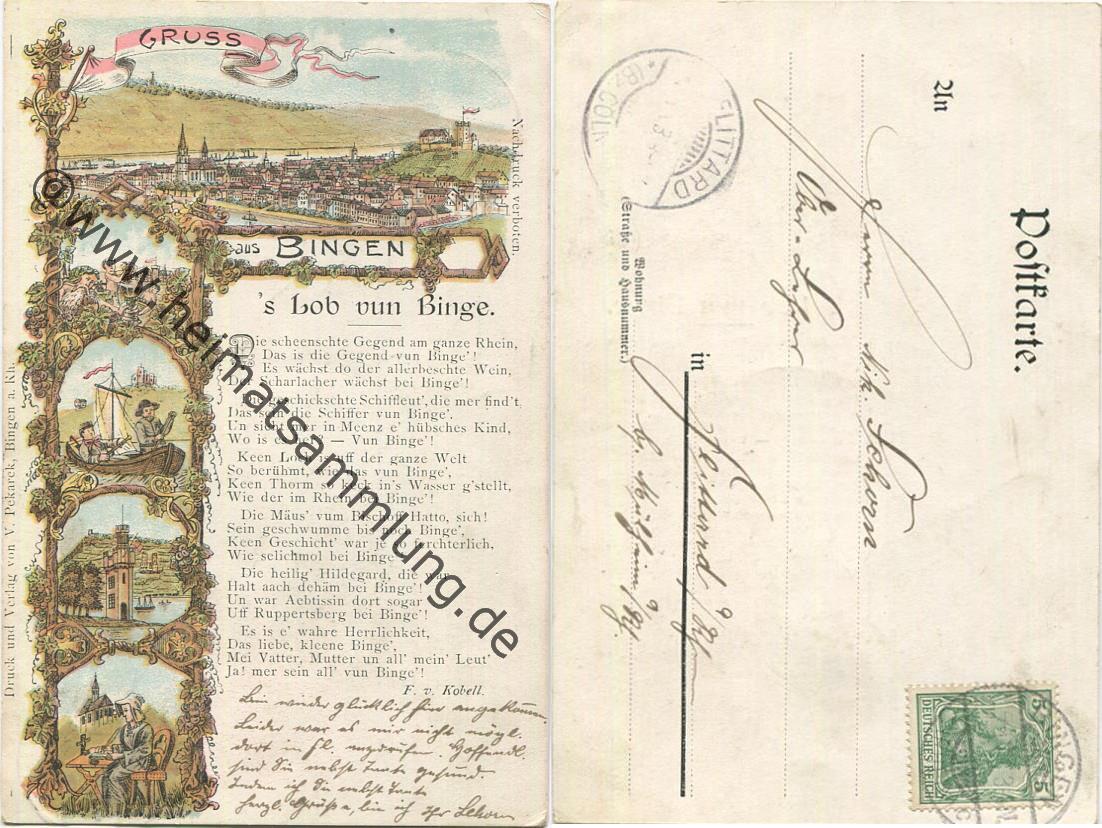 GRUSS
aus BINGEN
Nachdruck verboten.
Druck und Verlag von V. Pekarek, Bingen a. Rh.
's Lob vun Binge.
Die scheenschte Gegend am ganze Rhein,
Das is die Gegend vun Binge'!
Es wächst do der allerbeschte Wein,
Der Scharlacher wächst bei Binge'!
Die geschickschte Schiffleut', die mer find't,
Das sein die Schiffer vun Binge'.
Un sieht mer in Meenz e' hübsches Kind,
Wo is es her? — Vun Binge'!
Keen Loch is uff der ganze Welt
So berühmt, wie das vun Binge',
Keen Thorm so keck in's Wasser g'stellt,
Wie der im Rhein bei Binge'!
Die Mäus' vum Bischoff Hatto, sich!
Sein geschwumme bis noch Binge',
Keen Geschicht' war je so ferchterlich,
Wie selichmol bei Binge'
Die heilig' Hildegard, die war
Halt aach dehäm bei Binge'!
Un war Aebtissin dort sogar
Uff Ruppertsberg bei Binge'!
Es is e' wahre Herrlichkeit,
Das liebe, kleene Binge',
Mei Vatter, Mutter un all' mein' Leut'
Ja! mer sein all' vun Binge'!
F. v. Kobell.
Bin wieder glücklich hier angekommen.
Leider war es mir nicht mögl.
dort in Fl. anzurufen. Hoffendl.
sind Sie nebst Tante gesund.
Indem ich Sie nebst Tante
herzl. Grüße, bin ich Ihr
@www.heimatsammlung.de
Postkarte.
An
Herrn Nik. Schorn
in
Flittard
Wohnung
(Straße und Hausnummer.)
b. Mülheim
FLITTARD
(Bz. CÖLN)
DEUTSCHES REICH
5
5
BINGEN